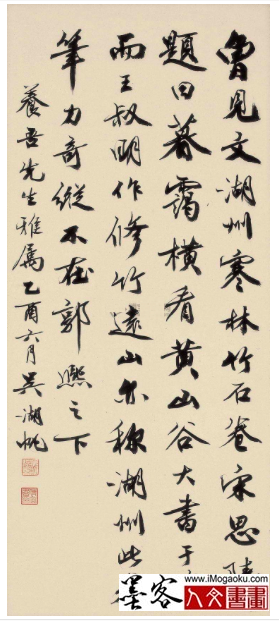 曾见文湖州寒林竹石卷宋思陵
題曰暮靄橫看黄山谷大書于
而王叔明作修竹遠山亦称湖州此
筆力奇縱不在郭熙之下
養吾先生雅屬乙酉六月吴湖帆
墨客
www.iMogaoku.com
人文書畫